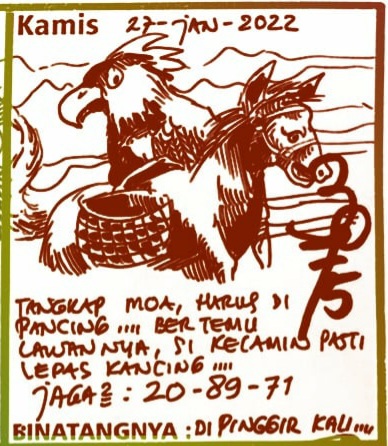 Kamis 27-JAN-2022
TANGKAP MOA, HARUS DI
PANCING .... BERTEMU
LAWANNYA, SI KELAMIN PASTI
LEPAS KANCING ....
JAGA2 : 20-89-71
BINATANGNYA : DI PINGGIR KALI....